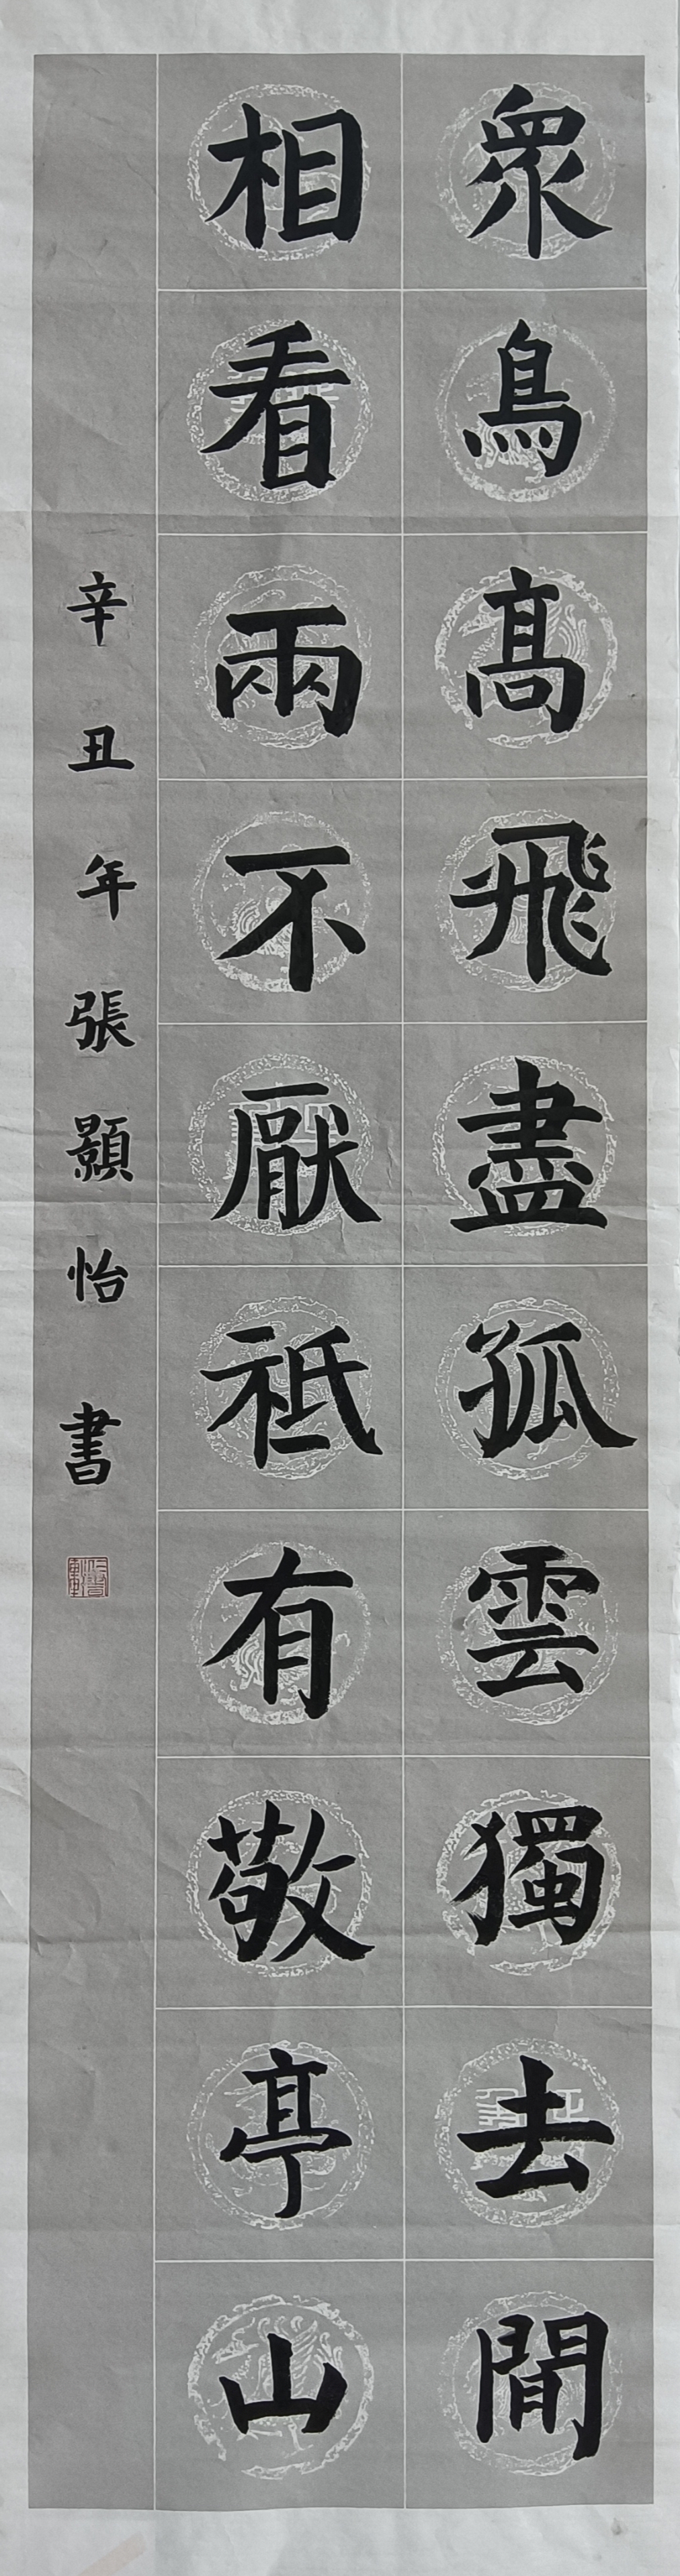 眾鳥高飛盡孤雲獨去閒
相看兩不厭祗有敬亭山
辛丑年張顥怡書